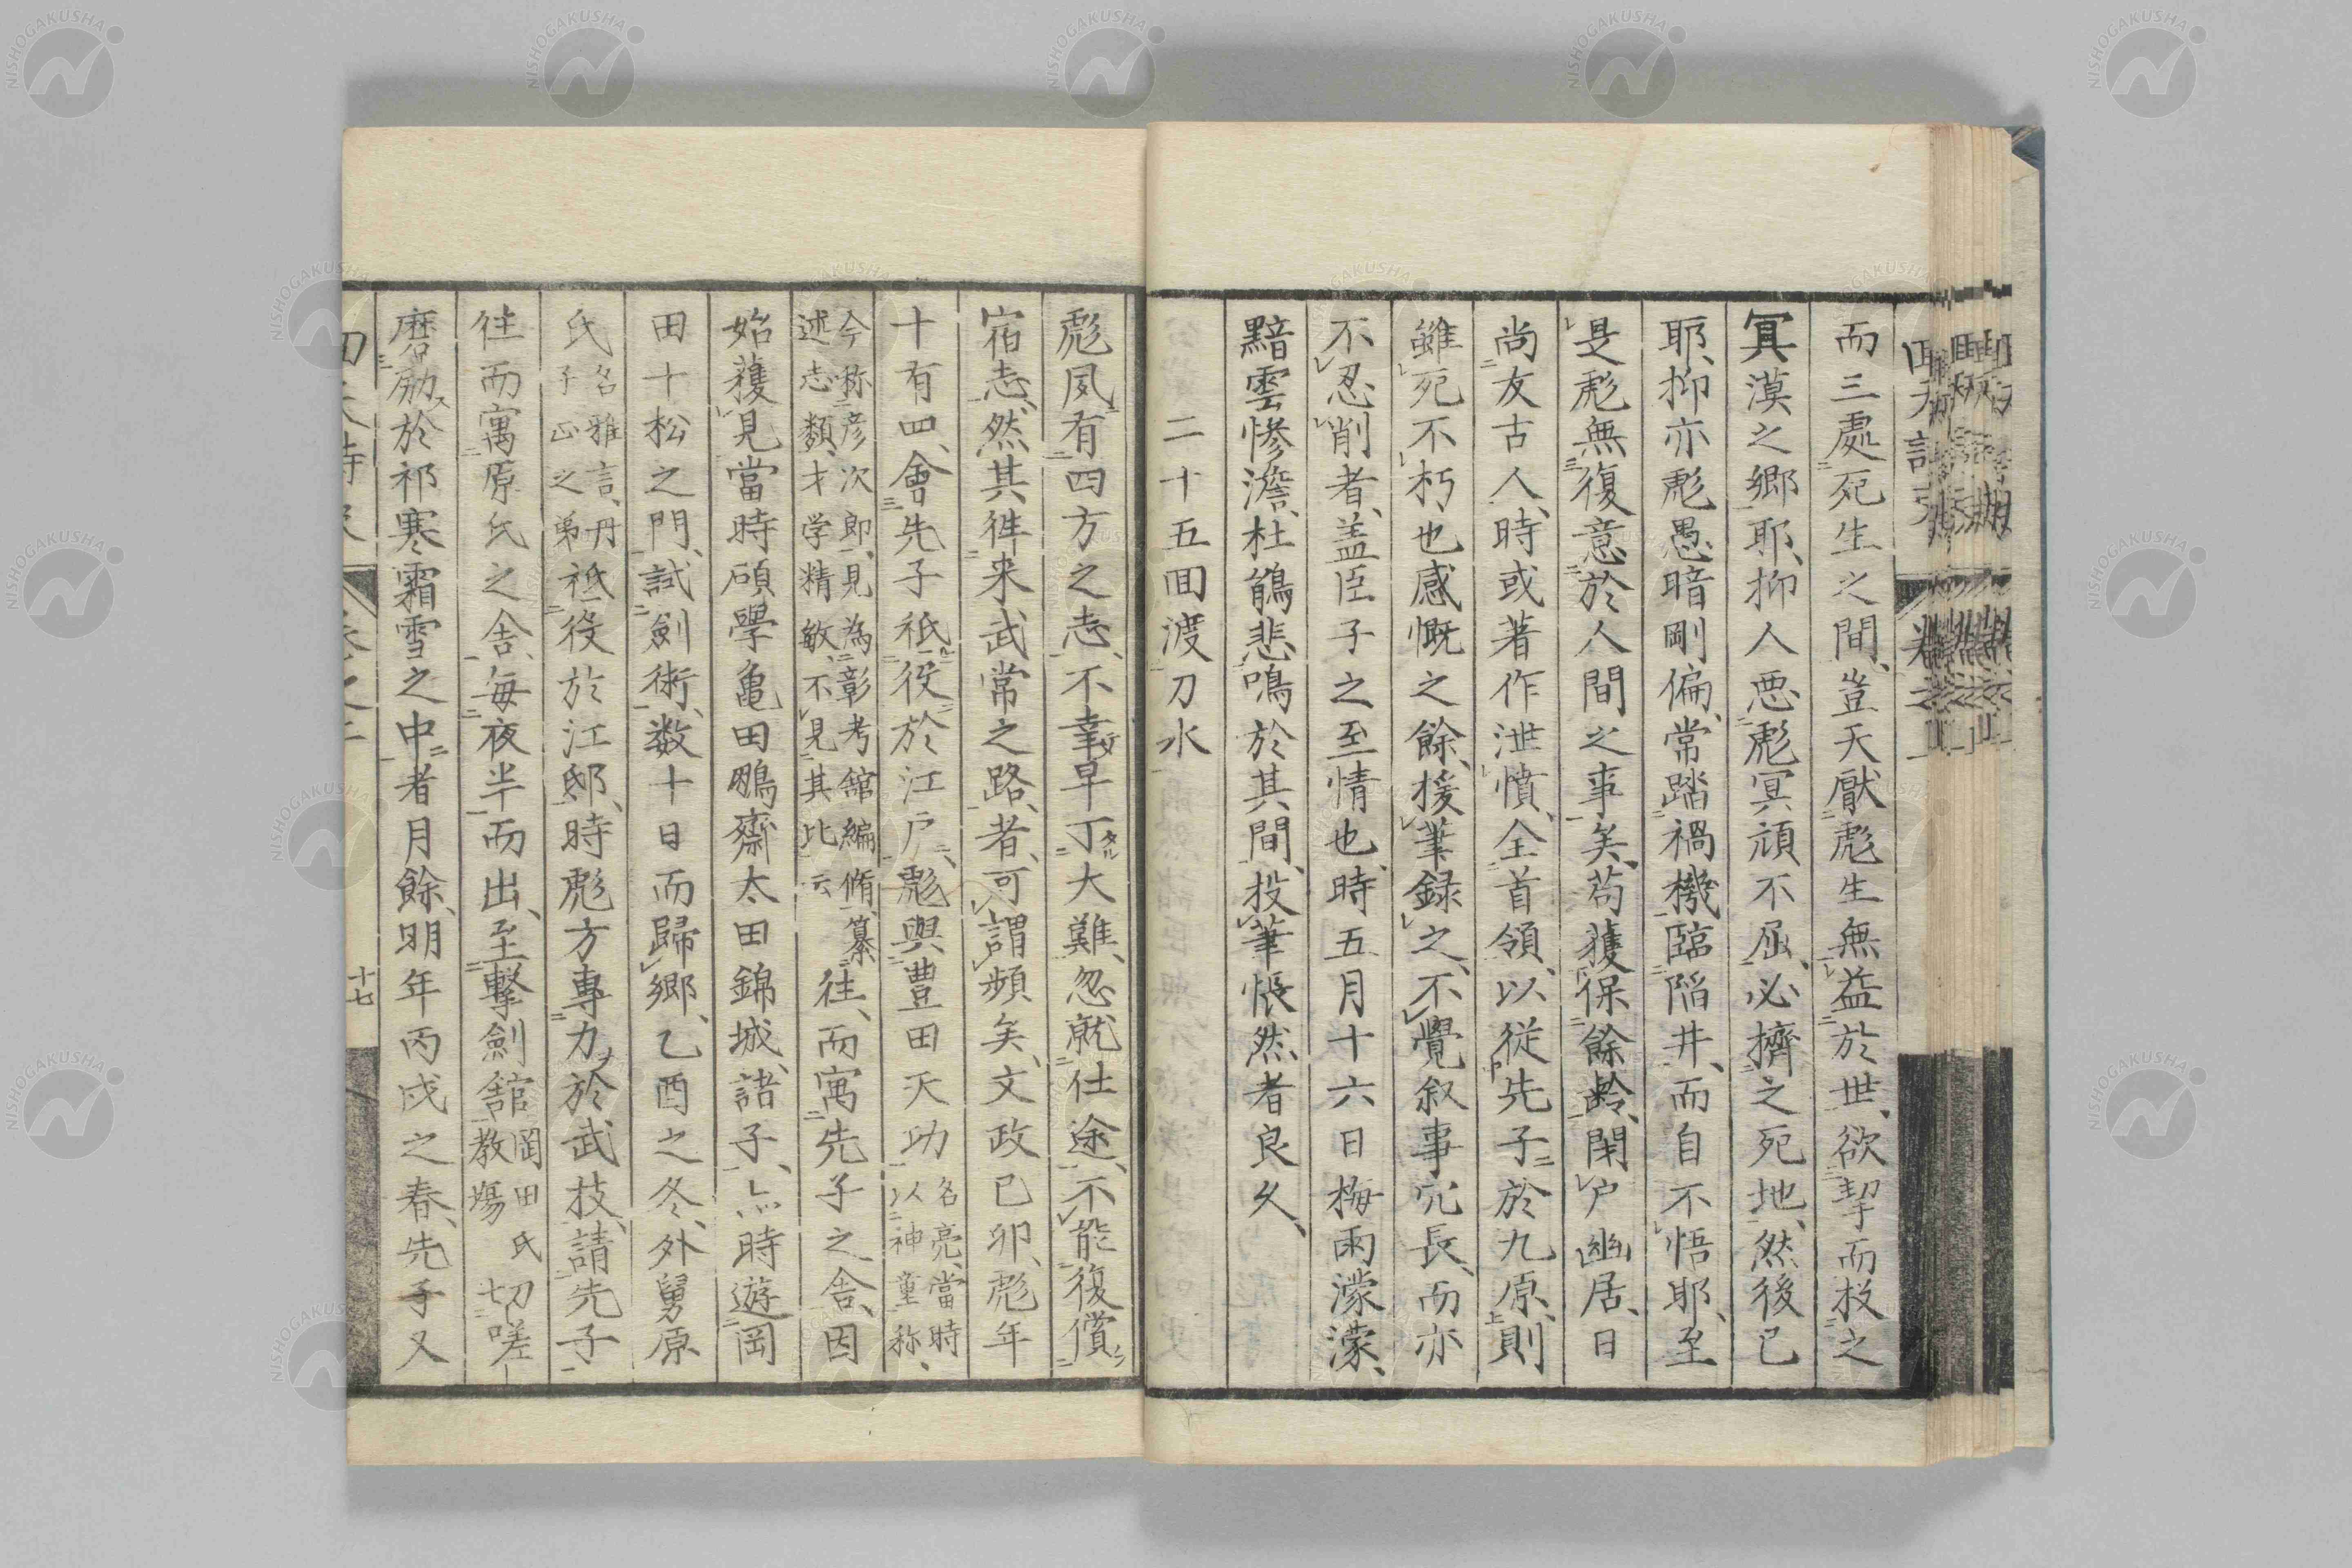 而三處死生之間、豈天厭彪生無益於世、欲挈而投之
冥漠之郷耶、抑人悪彪冥頑不屈、必擠之死地、然後已
耶、抑亦彪愚暗剛偏、常踏禍機臨陥井、而自不悟耶、至
是彪無復意於人間之事矣、苟獲保餘齢、閉戸幽居、日
尚友古人、時或著作泄憤、全首領、以從先子於九原、則
雖死不朽也感慨之餘、援筆録之、不覺叙事冗長、而亦
不忍削者、盖臣子之至情也、時五月十六日梅雨濛濛、
黯雲惨澹、杜鵑悲鳴於其間、投筆悵然者良久、
二十五回渡刀水
彪夙有四方之志、不幸早丁大難、忽就仕途、不能復償
宿志、然其徃来武常之路者、可謂頻矣、文政己卯、彪年
十有四、會先子祗役於江戸、彪與豊田天功
名亮、當時
以神童称、
今称彦次郎、見為彰考舘編脩、纂
述志類、才学精敏、不見其比云
往、而寓先子之舎、因
始獲見當時碩學亀田鵬齋太田錦城諸子、亦時遊岡
田十松之門、試劍術、数十日而歸郷、乙酉之冬、外舅原
氏
名雅言、丹
子正之弟
祗役於江邸、時彪方專力於武技、請先子
往而寓原氏之舎、毎夜半而出、至撃劍舘
岡田氏
教塲
切嗟
磨励於祁寒霜雪之中者月餘、明年丙戌之春、先子又
十七